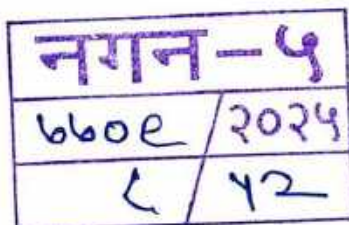 नगन-५
७७०९ / २०२५
८ / ५२